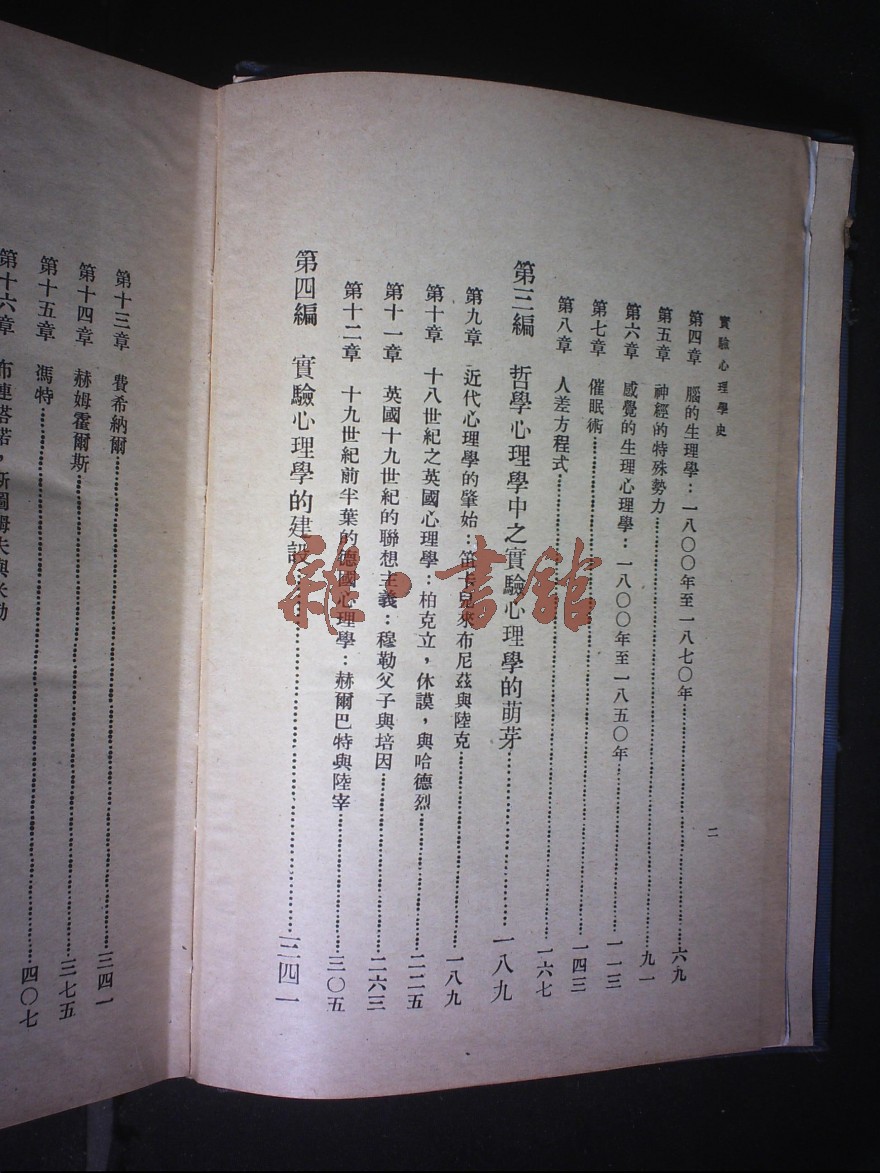 實驗心理學史
二
第四章 腦的生理學：一八〇〇年至一八七〇年……六九
第五章 神經的特殊勢力……九一
第六章 感覺的生理心理學：一八〇〇年至一八五〇年……一一三
第七章 催眠術……一四三
第八章 人差方程式……一六七
第三編 哲學心理學中之實驗心理學的萌芽……一八九
第九章 近代心理學的肇始：笛卡兒來布尼茲與陸克……一八九
第十章 十八世紀之英國心理學：柏克立，休謨，與哈德烈……二二五
第十一章 英國十九世紀的聯想主義：穆勒父子與培因……二六三
第十二章 十九世紀前半葉的德國心理學：赫爾巴特與陸宰……三〇五
第四編 實驗心理學的建設……三四一
第十三章 費希納爾……三四一
第十四章 赫姆霍爾斯……三七五
第十五章 馮特……四〇七
第十六章 布連塔諾，斯圖姆夫與米勒
雜·書館